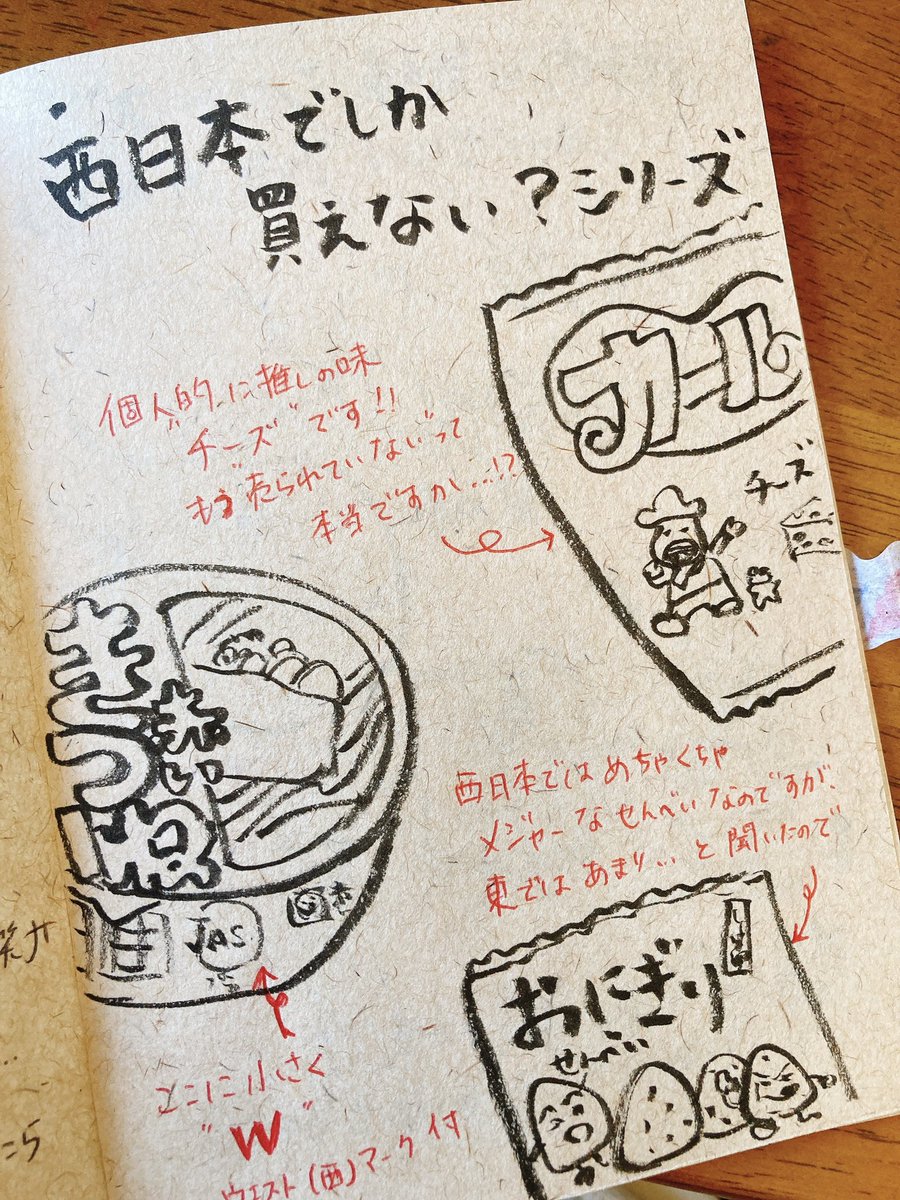 西日本でしか
買えない?シリーズ
個人的に推しの味
"チーズ"です!!
もう売られていないって
本当ですか...!?
カール
チーズ
赤い
きつね
JAS
西日本ではめちゃくちゃ
メジャーなせんべいなのですが、
東ではあまり...と聞いたので
おにぎり
せんべい
ここに小さく
"W"
ウエスト(西)マーク付